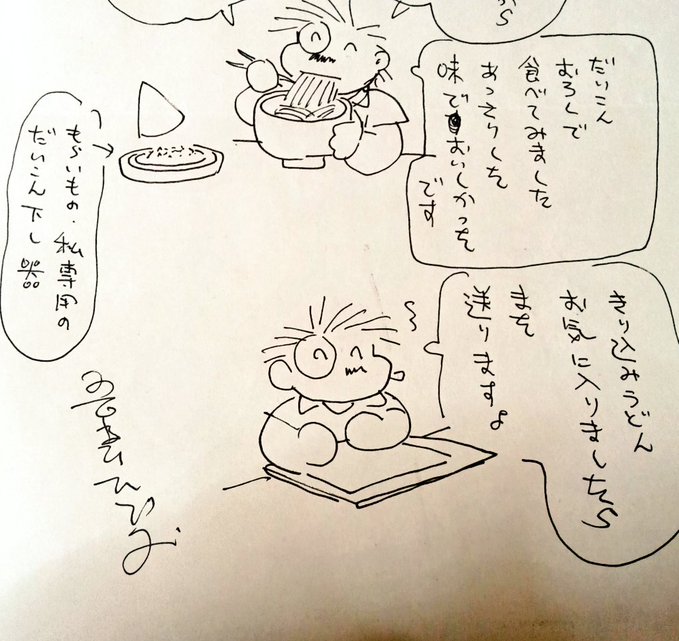 だいこん
おろしで
食べてみました
あっさりした
味でおいしかった
です
きり込みうどん
お気に入りましたら
また
送りますよ
もらいもの・私専用の
だいこん下し器